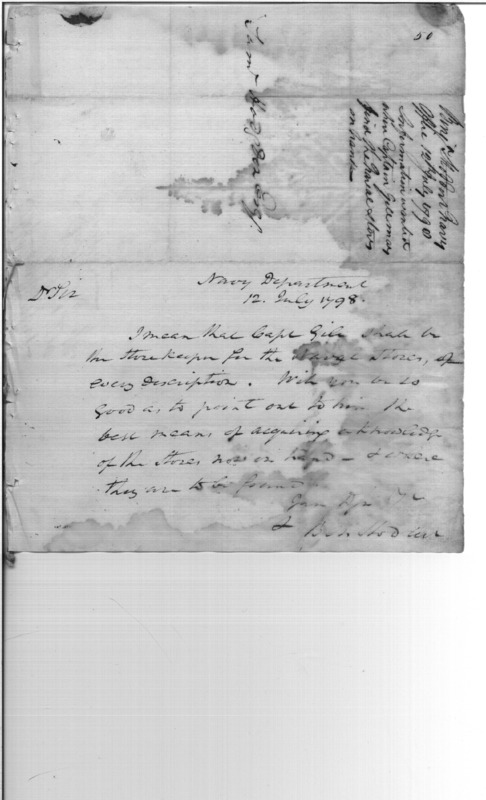 50
Saml Hodgdon Esq.
Benj Stoddert Navy
Office 12 July 1798
Information wanted
where Captain Gill may
find the Naval Stores
on hand
Navy Department
12. July 1798.
Dr Sir
I mean that Capt Gill shall be
the Storekeeper for the Naval Stores, of
every description. Will you be so
good as to point out to him the
best means of acquiring a knowledge
of the Stores now in hand - & where
they are to be found
Ben Stoddert